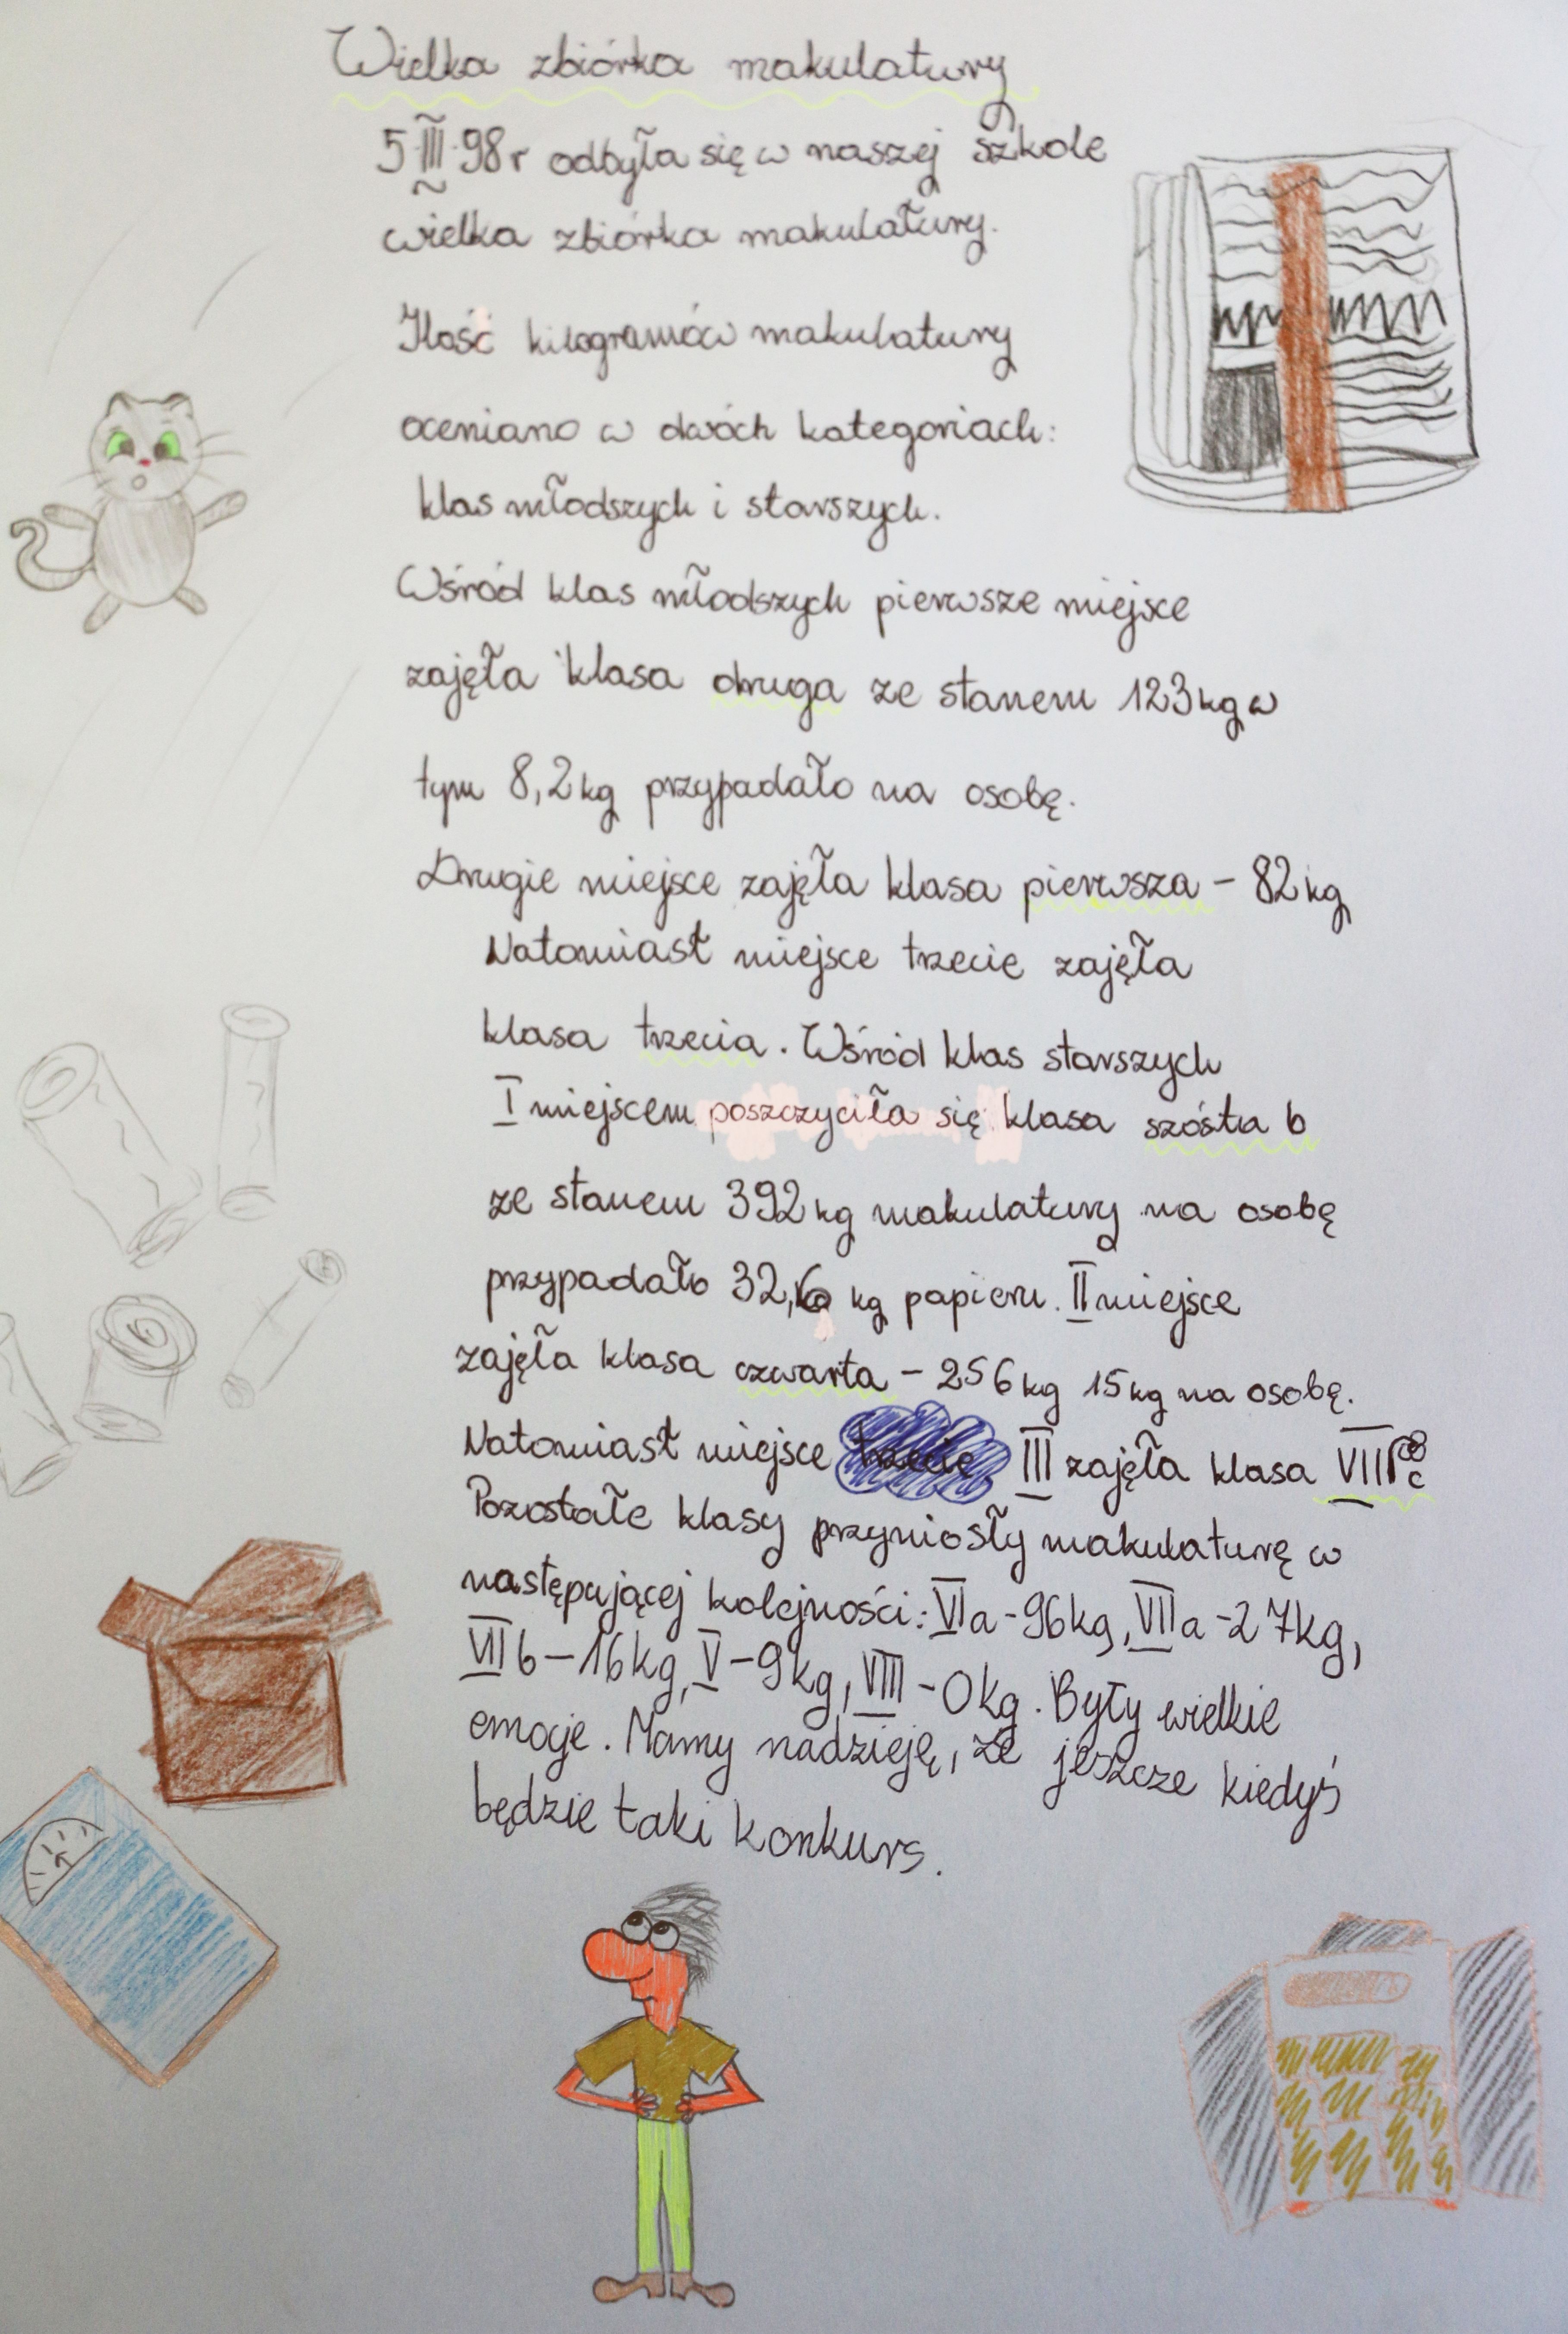 Wielka zbiórka makulatury
5 III 98 r odbyła się w naszej szkole
wielka zbiórka makulatury.
Ilość kilogramów makulatury
oceniano w dwóch kategoriach:
klas młodszych i starszych.
Wśród klas młodszych pierwsze miejsce
zajęła klasa druga ze stanem 123 kg w
tym 8,2 kg przypadało na osobę.
Drugie miejsce zajęła klasa pierwsza - 82 kg
Natomiast miejsce trzecie zajęła
klasa trzecia. Wśród klas starszych
I miejscem poszczyciła się klasa szósta b
ze stanem 392 kg makulatury na osobę
przypadało 32,6 kg papieru. II miejsce
zajęła klasa czwarta - 256 kg 15 kg na osobę.
Natomiast miejsce III zajęła klasa VII c
Pozostałe klasy przyniosły makulaturę w
następującej kolejności: VI a - 96 kg, VII a - 27 kg,
VII b - 16 kg, V - 9 kg, VIII - 0 kg. Były wielkie
emocje. Mamy nadzieję, że jeszcze kiedyś
będzie taki konkurs.